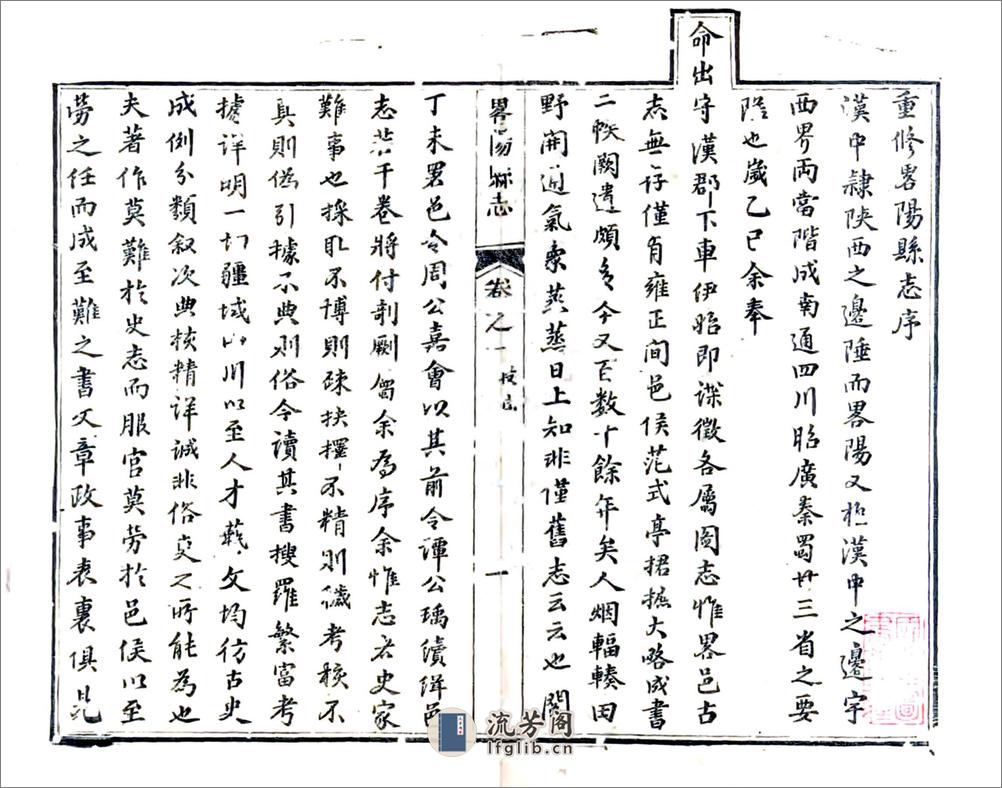 重修畧陽縣志序
漢中隸陜西之邊陲而畧陽又極漢中之邊宇
西界兩當階成南通四川昭廣秦蜀廿三省之要
隆也歲乙巳余奉
命出守漢郡下車伊始即諜徵各屬圖志惟畧邑古
志無存僅有雍正間邑侯范式亭捃摭大略成書
二帙闕遺頗多今又百數十餘年矣人烟輻輳田
野開通氣象蒸蒸日上知非僅舊志云云也閱
畧陽縣志
卷之一
一
丁未畧邑令周公嘉會以其前令譚公瑀續緝邑
志若干卷將付剞劂屬余為序余惟志者史家
難事也採取不博則疎抉擇不精則穢考核不
真則偽引據不典則俗今讀其書搜羅繁富考
據詳明一切疆域山川以至人才藝文均彷古史
成例分類叙次典核精詳誠非俗吏之所能為也
夫著作莫難於史志而服官莫勞於邑侯以至
勞之任而成至難之書文章政事表裏俱見
流芳阁
lfglib.cn